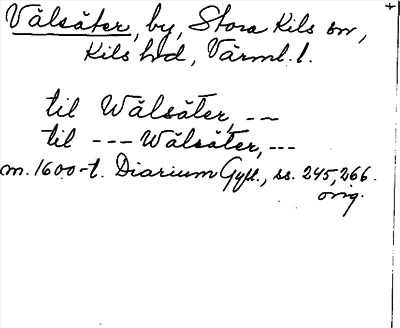 Vålsäter, by, Stora Kils sn,
Kils hd, Värml. l.
til Wålsäter, --
til --- Wålsäter, ---
m. 1600-t. Diarium Gyll., ss. 245, 266.
orig.